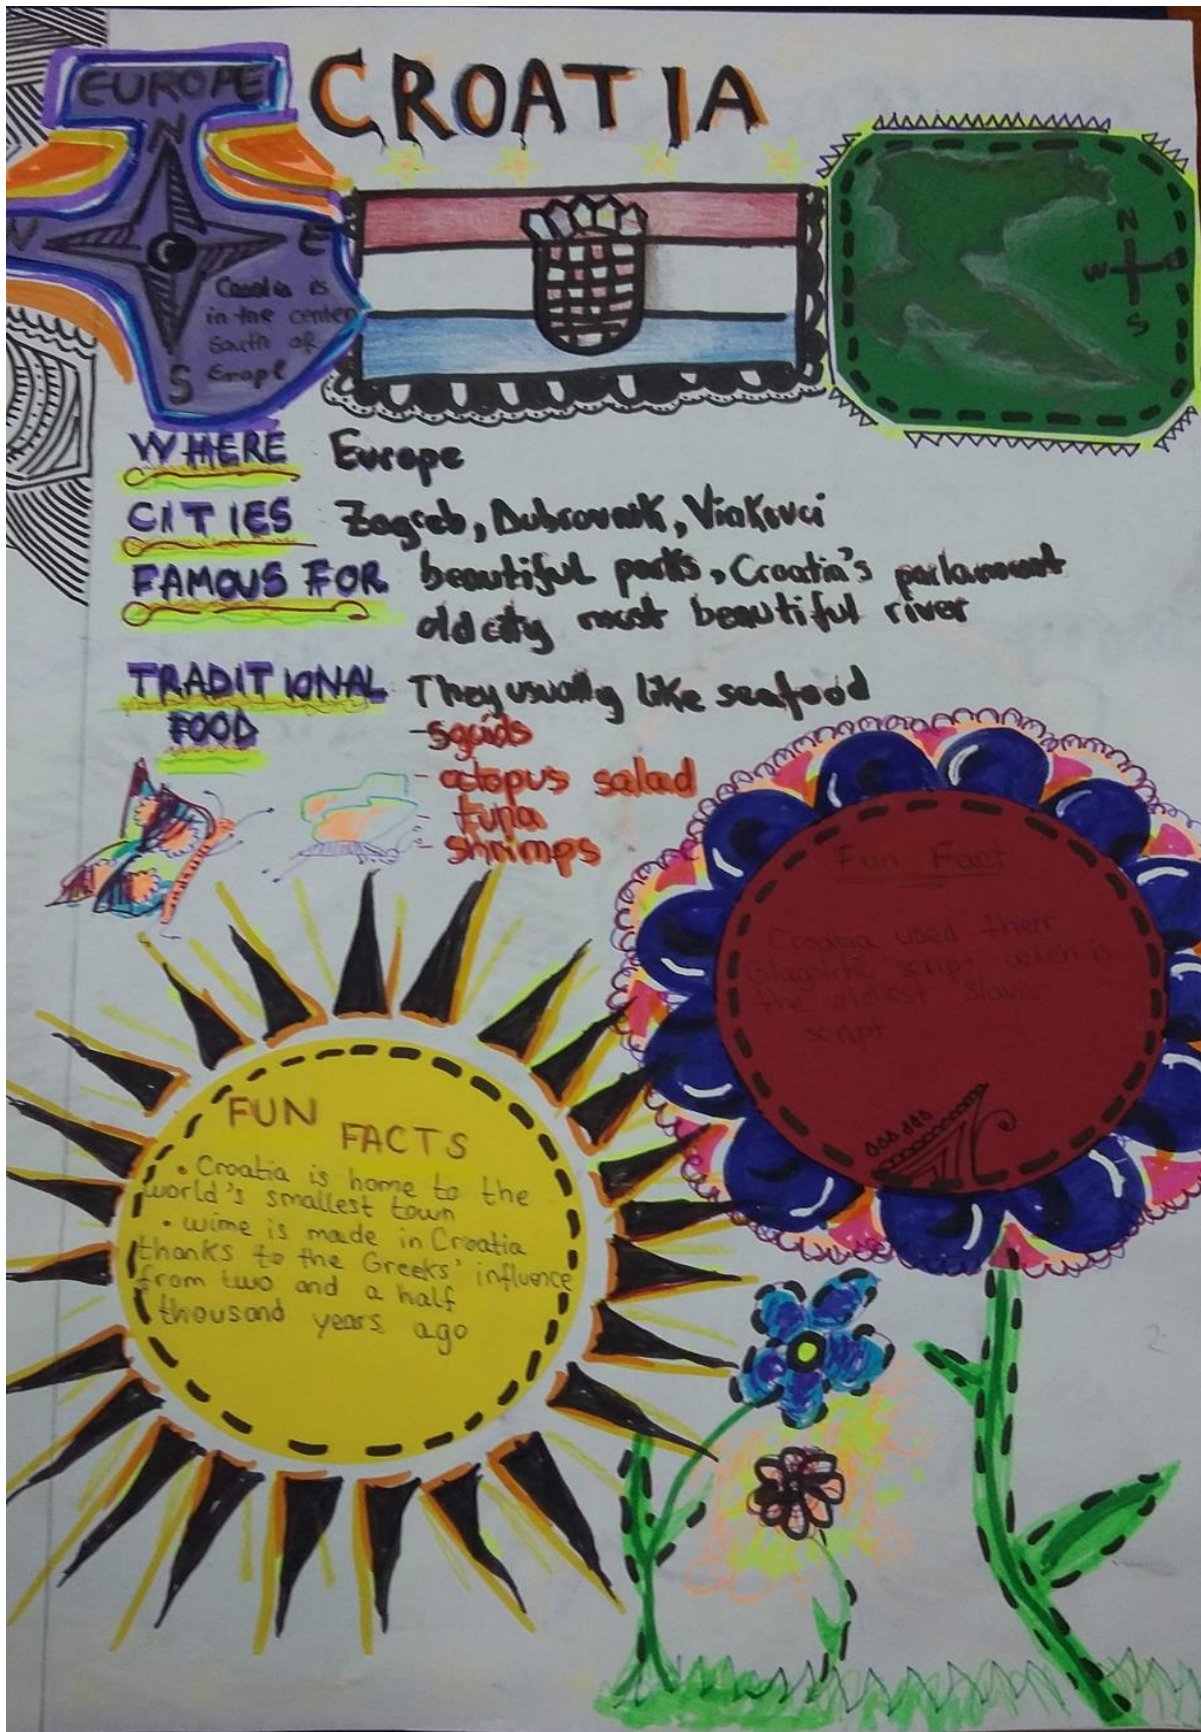 EUROPE
CROATIA
N
E
S
Croatia is
in the center
south of
N
W
S
WHERE Europe
CITIES Zagreb, Dubrovnik, Vinkovci
FAMOUS FOR beautiful parks, Croatia's parlament
old city most beautiful river
TRADITIONAL They usually like seafood
FOOD
-squids
- octopus salad
- tuna
- shrimps
Fun Fact
Croatia used their
script wich is
the oldest Slavic
script
FUN
FACTS
• Croatia is home to the
world's smallest town
• wime is made in Croatia
thanks to the Greeks' influence
from two and a half
thousand years ago
2